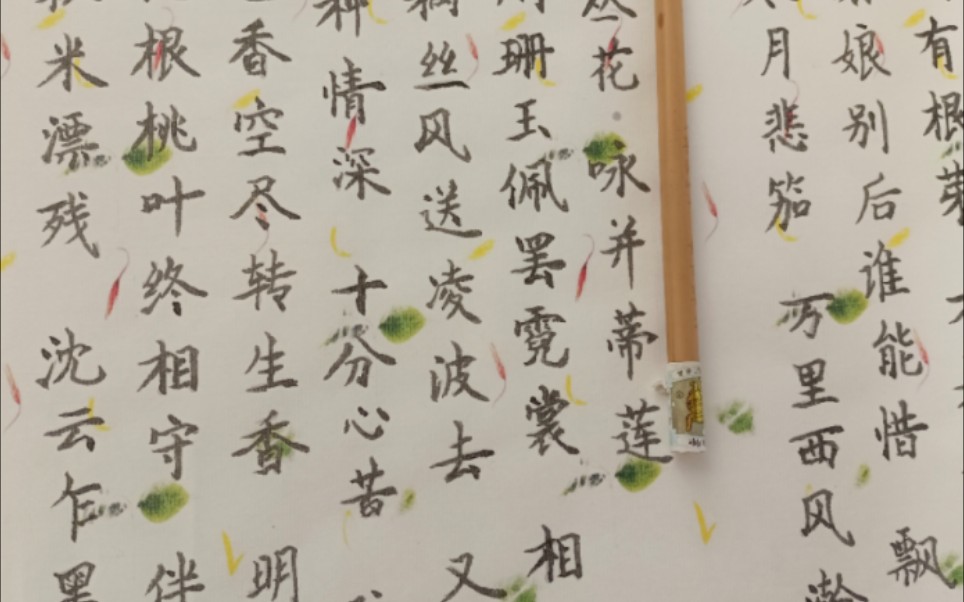 有根芽
娘别后谁能惜 飘
月悲笳 万里西风 瀚
丛花 咏并蒂莲
珊玉佩罢霓裳 相
丝风送凌波去 又
种情深 十分心苦
香空尽转生香 明
根桃叶终相守 伴
米漂残 沈云乍黑